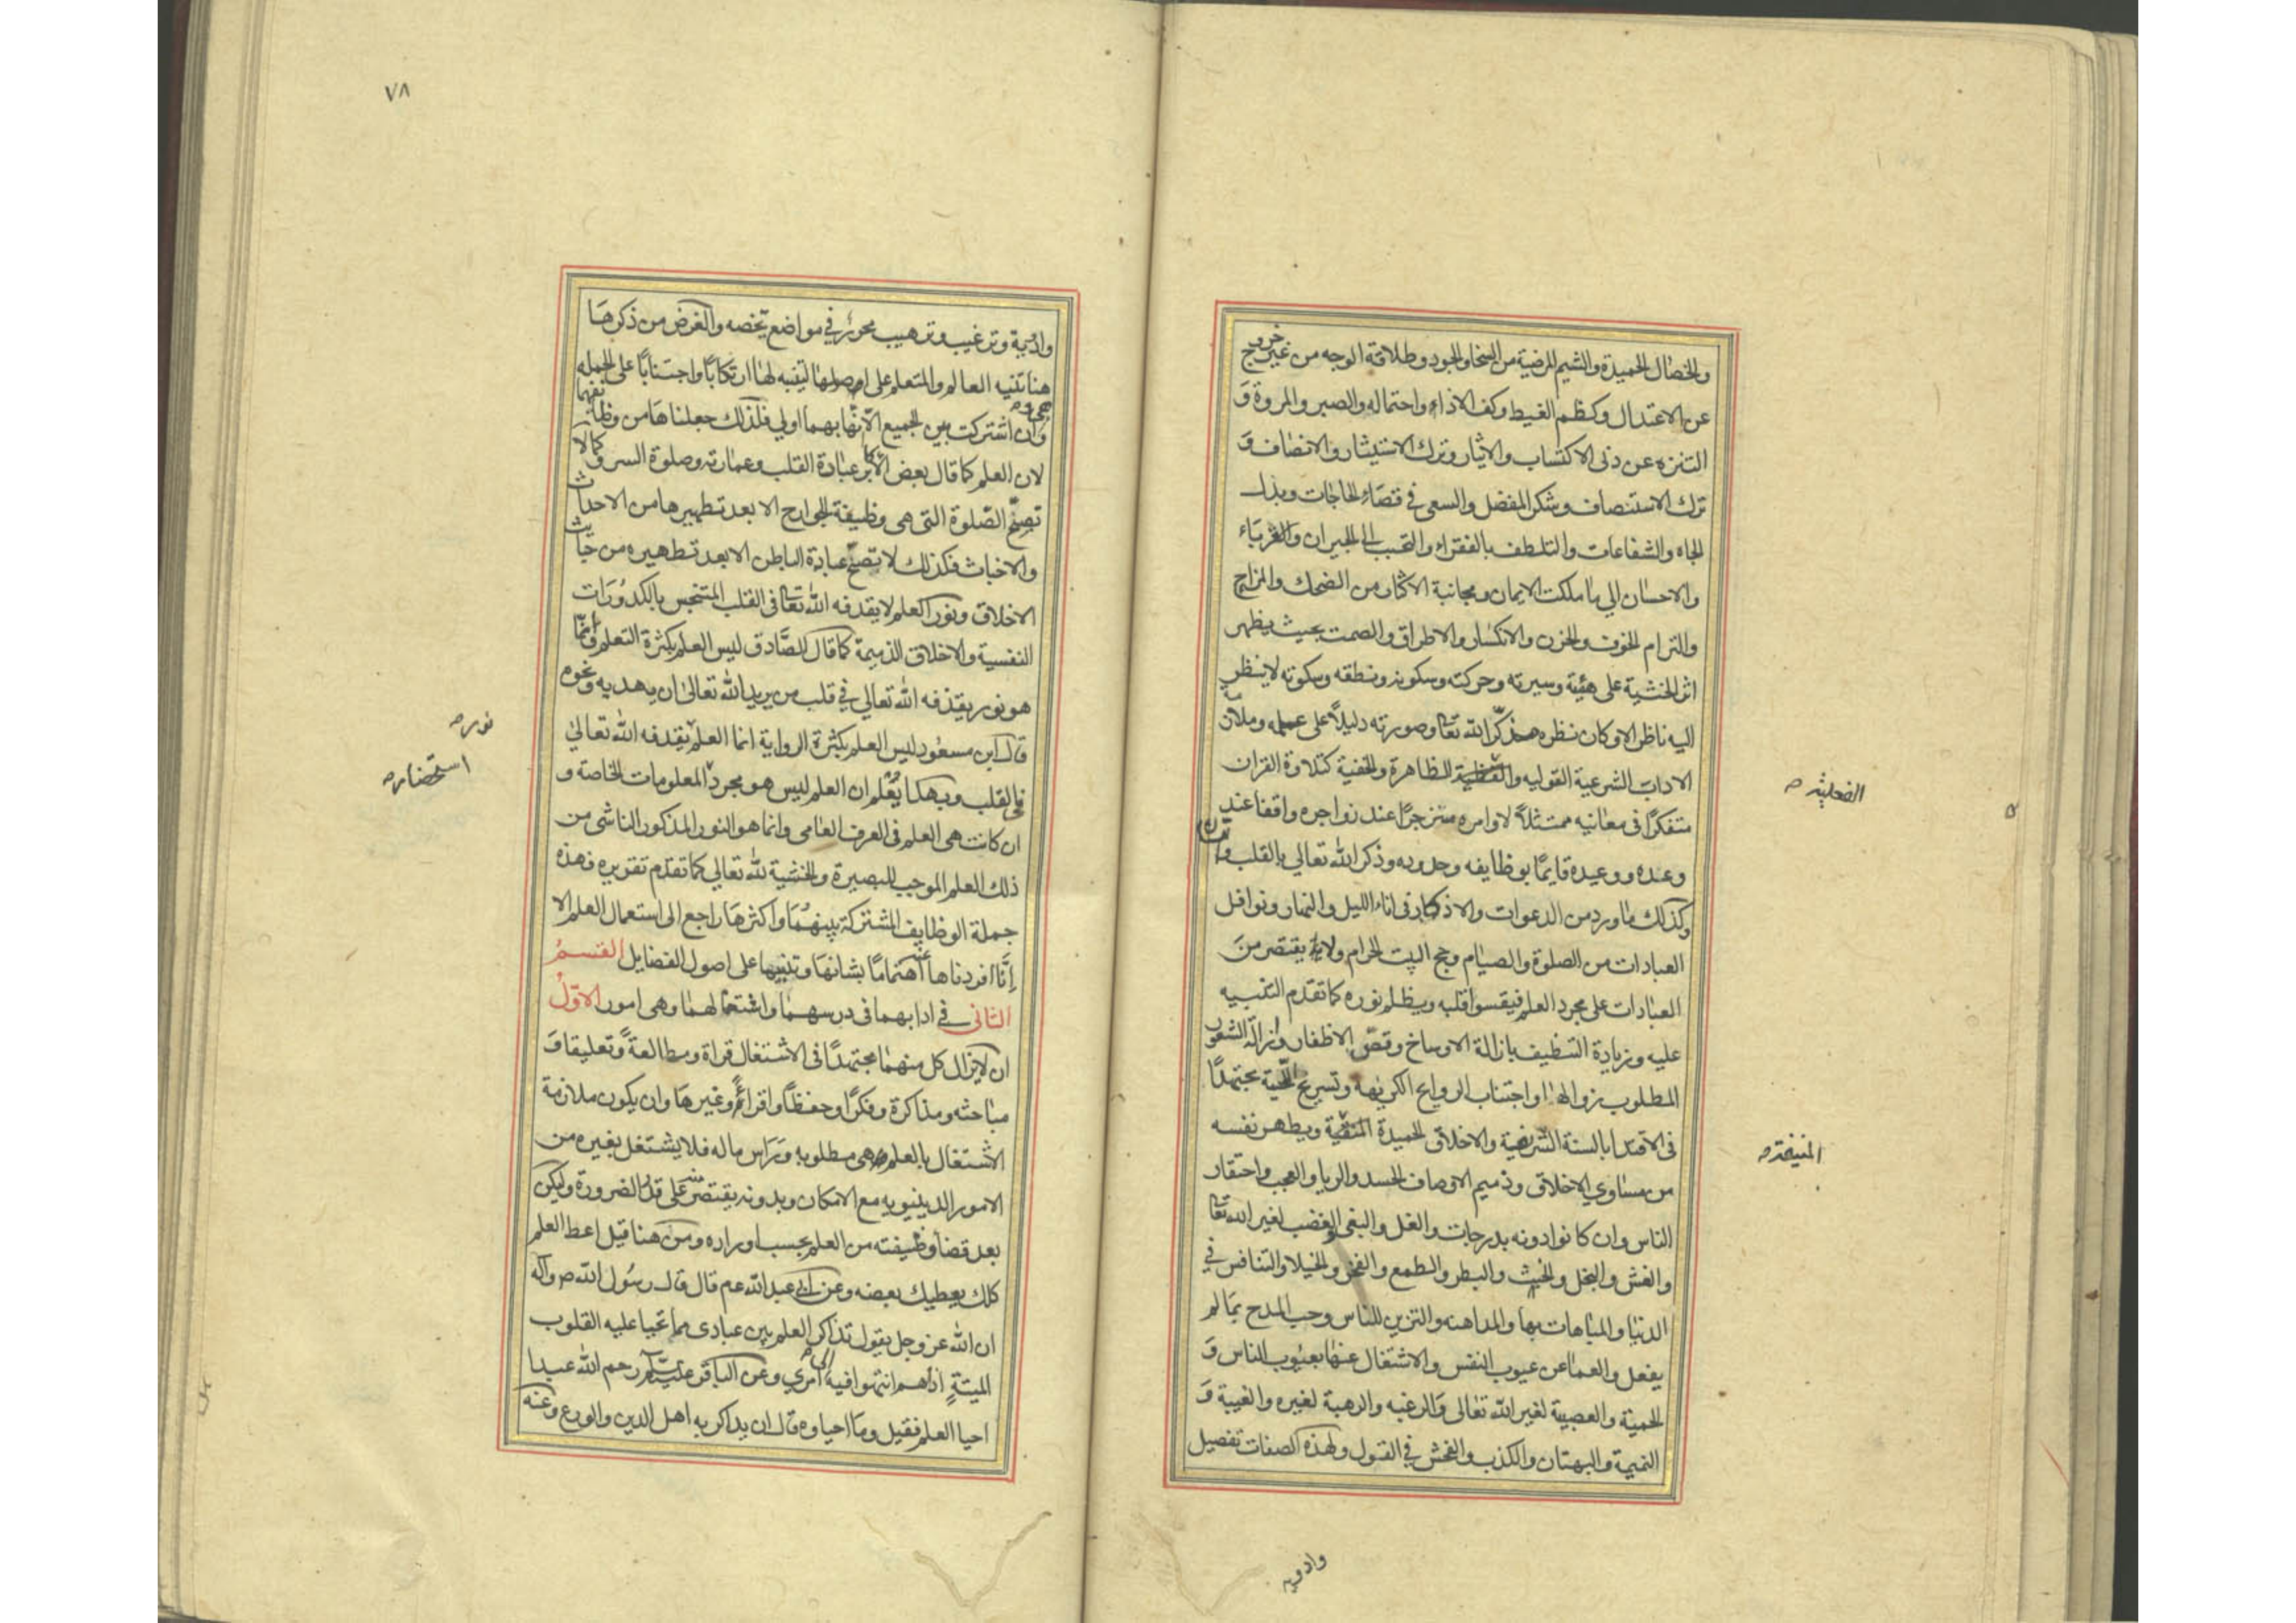 والخصال الحميدة والشيم المرضية من السخا والجود وطلاقة الوجه من غير خروج
عن الاعتدال وكظم الغيظ وكف الاذاء واحتماله والصبر والمروة و
التنزه عن دنى الاكتساب والايثار وترك الاستيثار والانصاف و
ترك الاستنصاف وشكر المفضل والسعى في قضاء الحاجات وبذل
الجاه والشفاعات والتلطف بالفقراء والتحبب الى الجيران والاقرباء
والاحسان الى ما ملكت الايمان ومجانبة الاكثار من الضحك والمزاح
والتزام الخوف والحزن والانكسار والاطراق والصمت بحيث يظهر
اثر الخشية على هيئة وسيرته وحركته وسكونه ونطقه وسكوته لا ينظر
اليه ناظر الا وكان نظره مذكرا لله تعا وصورته دليلاً على عمله وملازمة
الاداب الشرعية القوليه والظاهرة والخفية كتلاوة القران
متفكرًا فى معانيه ممتثلاً لاوامره منزجرًا عند زواجره واقفا عند
وعده ووعيده قايمًا بوظايفه وحدوده وذكر الله تعالى بالقلب واللسان
وكذلك ما ورد من الدعوات والاذكار فى اناء الليل والنهار ونوافل
العبادات من الصلوة والصيام وحج البيت الحرام ولا يقتصر من
العبادات على مجرد العلم فيقسوا قلبه ويظلم نوره كما تقدم التنبيه
عليه وزيادة التنظيف بازالة الاوساخ وقص الاظفار وازالة الشعور
المطلوب زوالها واجتناب الروايح الكريهة وتسريح اللحية مجتهدًا
فى الاقتدا بالسنة الشريفة والاخلاق الحميدة المنيفة ويطهر نفسه
من مساوي الاخلاق وذميم الاوصاف الحسد والريا والعجب واحتقار
الناس وان كانوا دونه بدرجات والغل والبغى والغضب لغير الله تعا
والغش والبخل والخبث والبطر والطمع والفخر والخيلا والتنافس في
الدنيا والمباهات بها والمداهنه والتزين للناس وحب المدح بما لم
يفعل والعما عن عيوب النفس والاشتغال عنها بعيوب الناس و
الحمية والعصبية لغير الله تعالى والرغبه والرهبة لغيره والغيبة و
النميمة والبهتان والكذب والفحش في القول ولهذه الصفات تفصيل
الفعلية
المنيفة
وادوية
٧٨
وادوية وترغيب وترهيب محرر في مواضع تخصه والغرض من ذكرها
هنا تنبيه العالم والمتعلم على اصولها ليتنبه لها ارتكابًا واجتنابًا على الجمله
وهى وان اشتركت بين الجميع الا انها بهما اولى فلذلك جعلناها من وظايفهما
لان العلم كما قال بعض الاكابر عبادة القلب وعمارته وصلوة السر وكما لا
تصح الصلوة التى هى وظيفة الجوارح الا بعد تطهيرها من الاحداث
والاخباث فكذلك لا تصح عبادة الباطن الا بعد تطهيره من خبايث
الاخلاق ونور العلم لا يقذفه الله تعالى فى القلب المتنجس بالكدورات
النفسية والاخلاق الذميمة كما قال الصادق ليس العلم بكثرة التعلم وانما
هو نور يقذفه الله تعالى في قلب من يريد الله تعالى ان يهديه ونحوه
قال ابن مسعود ليس العلم بكثرة الرواية انما العلم يقذفه الله تعالى
فى القلب وبهذا يُعلم ان العلم ليس هو مجرد المعلومات الخاصة و
ان كانت هى العلم فى العرف العامى وانما هو النور المذكور الناشى من
ذلك العلم الموجب للبصيرة والخشية لله تعالى كما تقدم تقريره فهذه
جملة الوظايف المشتركة بينهما واكثرها راجع الى استعمال العلم الا
انا افردناها عنه اهتمامًا بشانها وتنبيها على اصول الفضايل القسم
الثانى في ادابهما فى درسهما واشتغالهما وهى امور الاول
ان لا يزال كل منهما مجتهدًا فى الاشتغال قراة ومطالعةً وتعليقا و
مباحثه ومذاكرة وفكرًا وحفظًا واقراءً وغيرها وان يكون ملازمة
الاشتغال بالعلم هى مطلوبه وراس ماله فلا يشتغل بغيره من
الامور الدينيويه مع الامكان وبدونه يقتصر منه على قدر الضرورة وليكن
بعد قضا وظيفته من العلم بحسب اوراده ومن هنا قيل اعط العلم
كلك يعطيك بعضه وعن ابى عبدالله عم قال قال رسول الله ص وآله
ان الله عز وجل يقول تذاكر العلم بين عبادى مما تحيا عليه القلوب
الميتة اذا هم انتهوا فيه الى امري وعن الباقر عليه السلام رحم الله عبدا
احيا العلم فقيل وما احياوه قال ان يذاكر به اهل الدين والورع وعنه
نور
استحضار